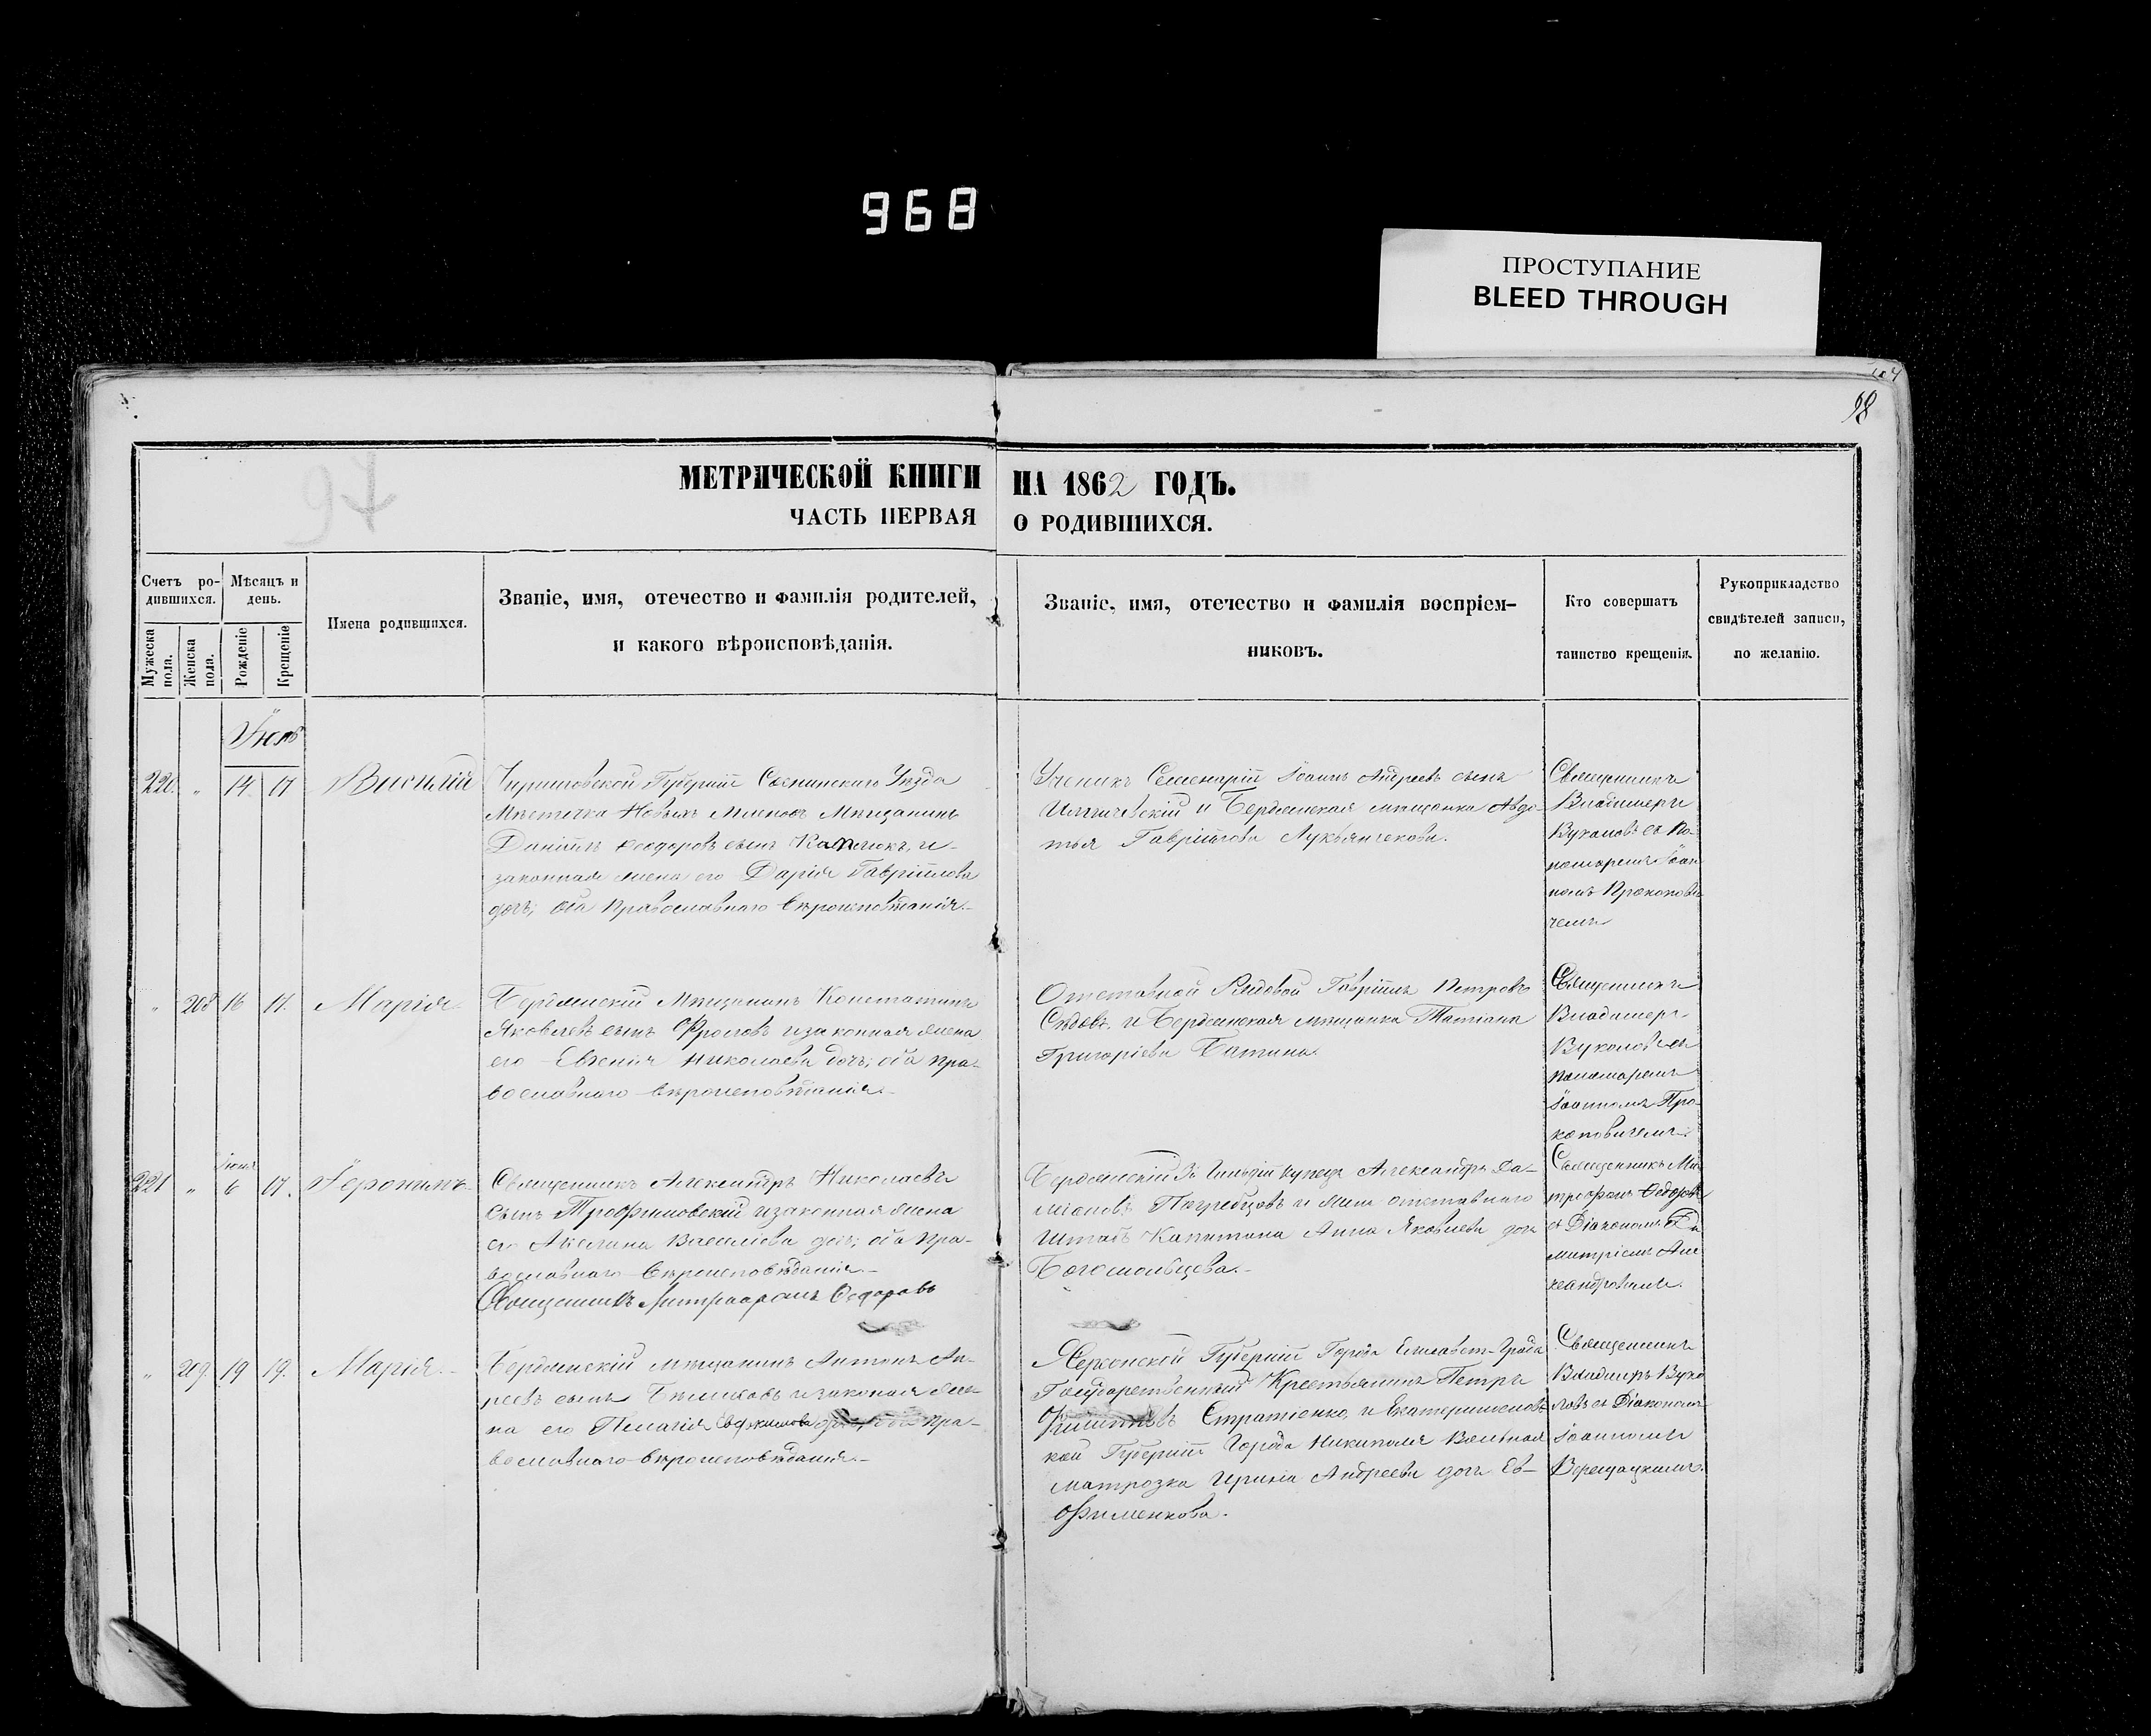 968
ПРОСТУПАНИЕ
BLEED THROUGH
98
97
МЕТРИЧЕСКОЙ КНИГИ НА 1862 ГОДЪ.
ЧАСТЬ ПЕРВАЯ О РОДИВШИХСЯ.
Счетъ ро-
дившихся.
Мужеска пола.
Женска пола.
Мѣсяцъ и день.
Рожденіе
Крещеніе
Имена родившихся.
Званіе, имя, отечество и фамилія родителей,
и какого вѣроисповѣданія.
Званіе, имя, отечество и фамилія воспріем-
никовъ.
Кто совершатъ
таинство крещенія.
Рукоприкладство
свидѣтелей записи,
по желанію.
Іюль
220. " 14 17 Василій
Черниговской Губерніи Сосницкаго Уѣзда
Мѣстечка Новыхъ Мленовъ Мѣщанинъ
Даніилъ Ѳеодоровъ сынъ и
законная жена его Дарія Гавріилова
дочь; оба Православнаго вѣроисповѣданія.
Ученикъ Семенаріи Іоаннъ Андреевъ сынъ
и Бердянская мѣщанка Авдо-
тья Гавріилова Лукьянченкова.
Священникъ
Владимеръ
Вуколовъ съ По-
номаремъ Іоан-
номъ Прокопови-
чемъ
" 208 16 17. Марія
Бердянскій Мѣщанинъ Констатинъ
Яковлевъ сынъ Фроловъ и законная жена
его Евгенія Николаева дочь; оба пра-
вославнаго вѣроисповѣданія.
Отставной Рядовой Гавріилъ Петровъ
Сѣдовъ, и Бердянская мѣщанка Татіана
Григоріева Батина.
Священникъ
Владимеръ
Вуколовъ съ
пономаремъ
Іоанномъ Про-
коповичемъ.
221 " Іюня 6 17. Іеронимъ
Священникъ Александръ Николаевъ
сынъ Трофимовскій и законная жена
его Акелина Василіева дочь; оба пра-
вославнаго вѣроисповѣданія.
Священникъ Митрофанъ Ѳедоровъ
Бердянскій гильдіи купецъ Александръ Да-
міановъ Погребцовъ и жена отставнаго
Штабъ Капитана Анна Яковлева дочь
Богомольцева.
Священникъ Ми-
трофанъ Ѳедоровъ
съ Діакономъ Ди-
митріемъ Але-
" 209. 19 19. Марія.
Бердянскій мѣщанинъ Антонъ Ан-
реевъ сынъ и законная же-
на его Пелагія дочь; оба пра-
вославнаго вѣроисповѣданія.
Херсонской Губерніи Города Елисавет-Града
Государственный Крестьянинъ Петръ
Филиповъ Стратіенко, и Екатеринослав-
кой Губерніи Города Никиполя Вольная
матрозка Ирина Андреева дочь Ев-
фименкова.
Священникъ
Владимеръ Вуко-
ловъ съ Діакономъ
Іоанномъ
Верещацкимъ.